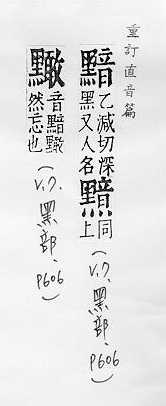 重訂直音篇
黯 乙減切深
黑又人名
同
上
(V.7. 黑部. p606)
音黯
然忘也
(V.7. 黑部. p606)